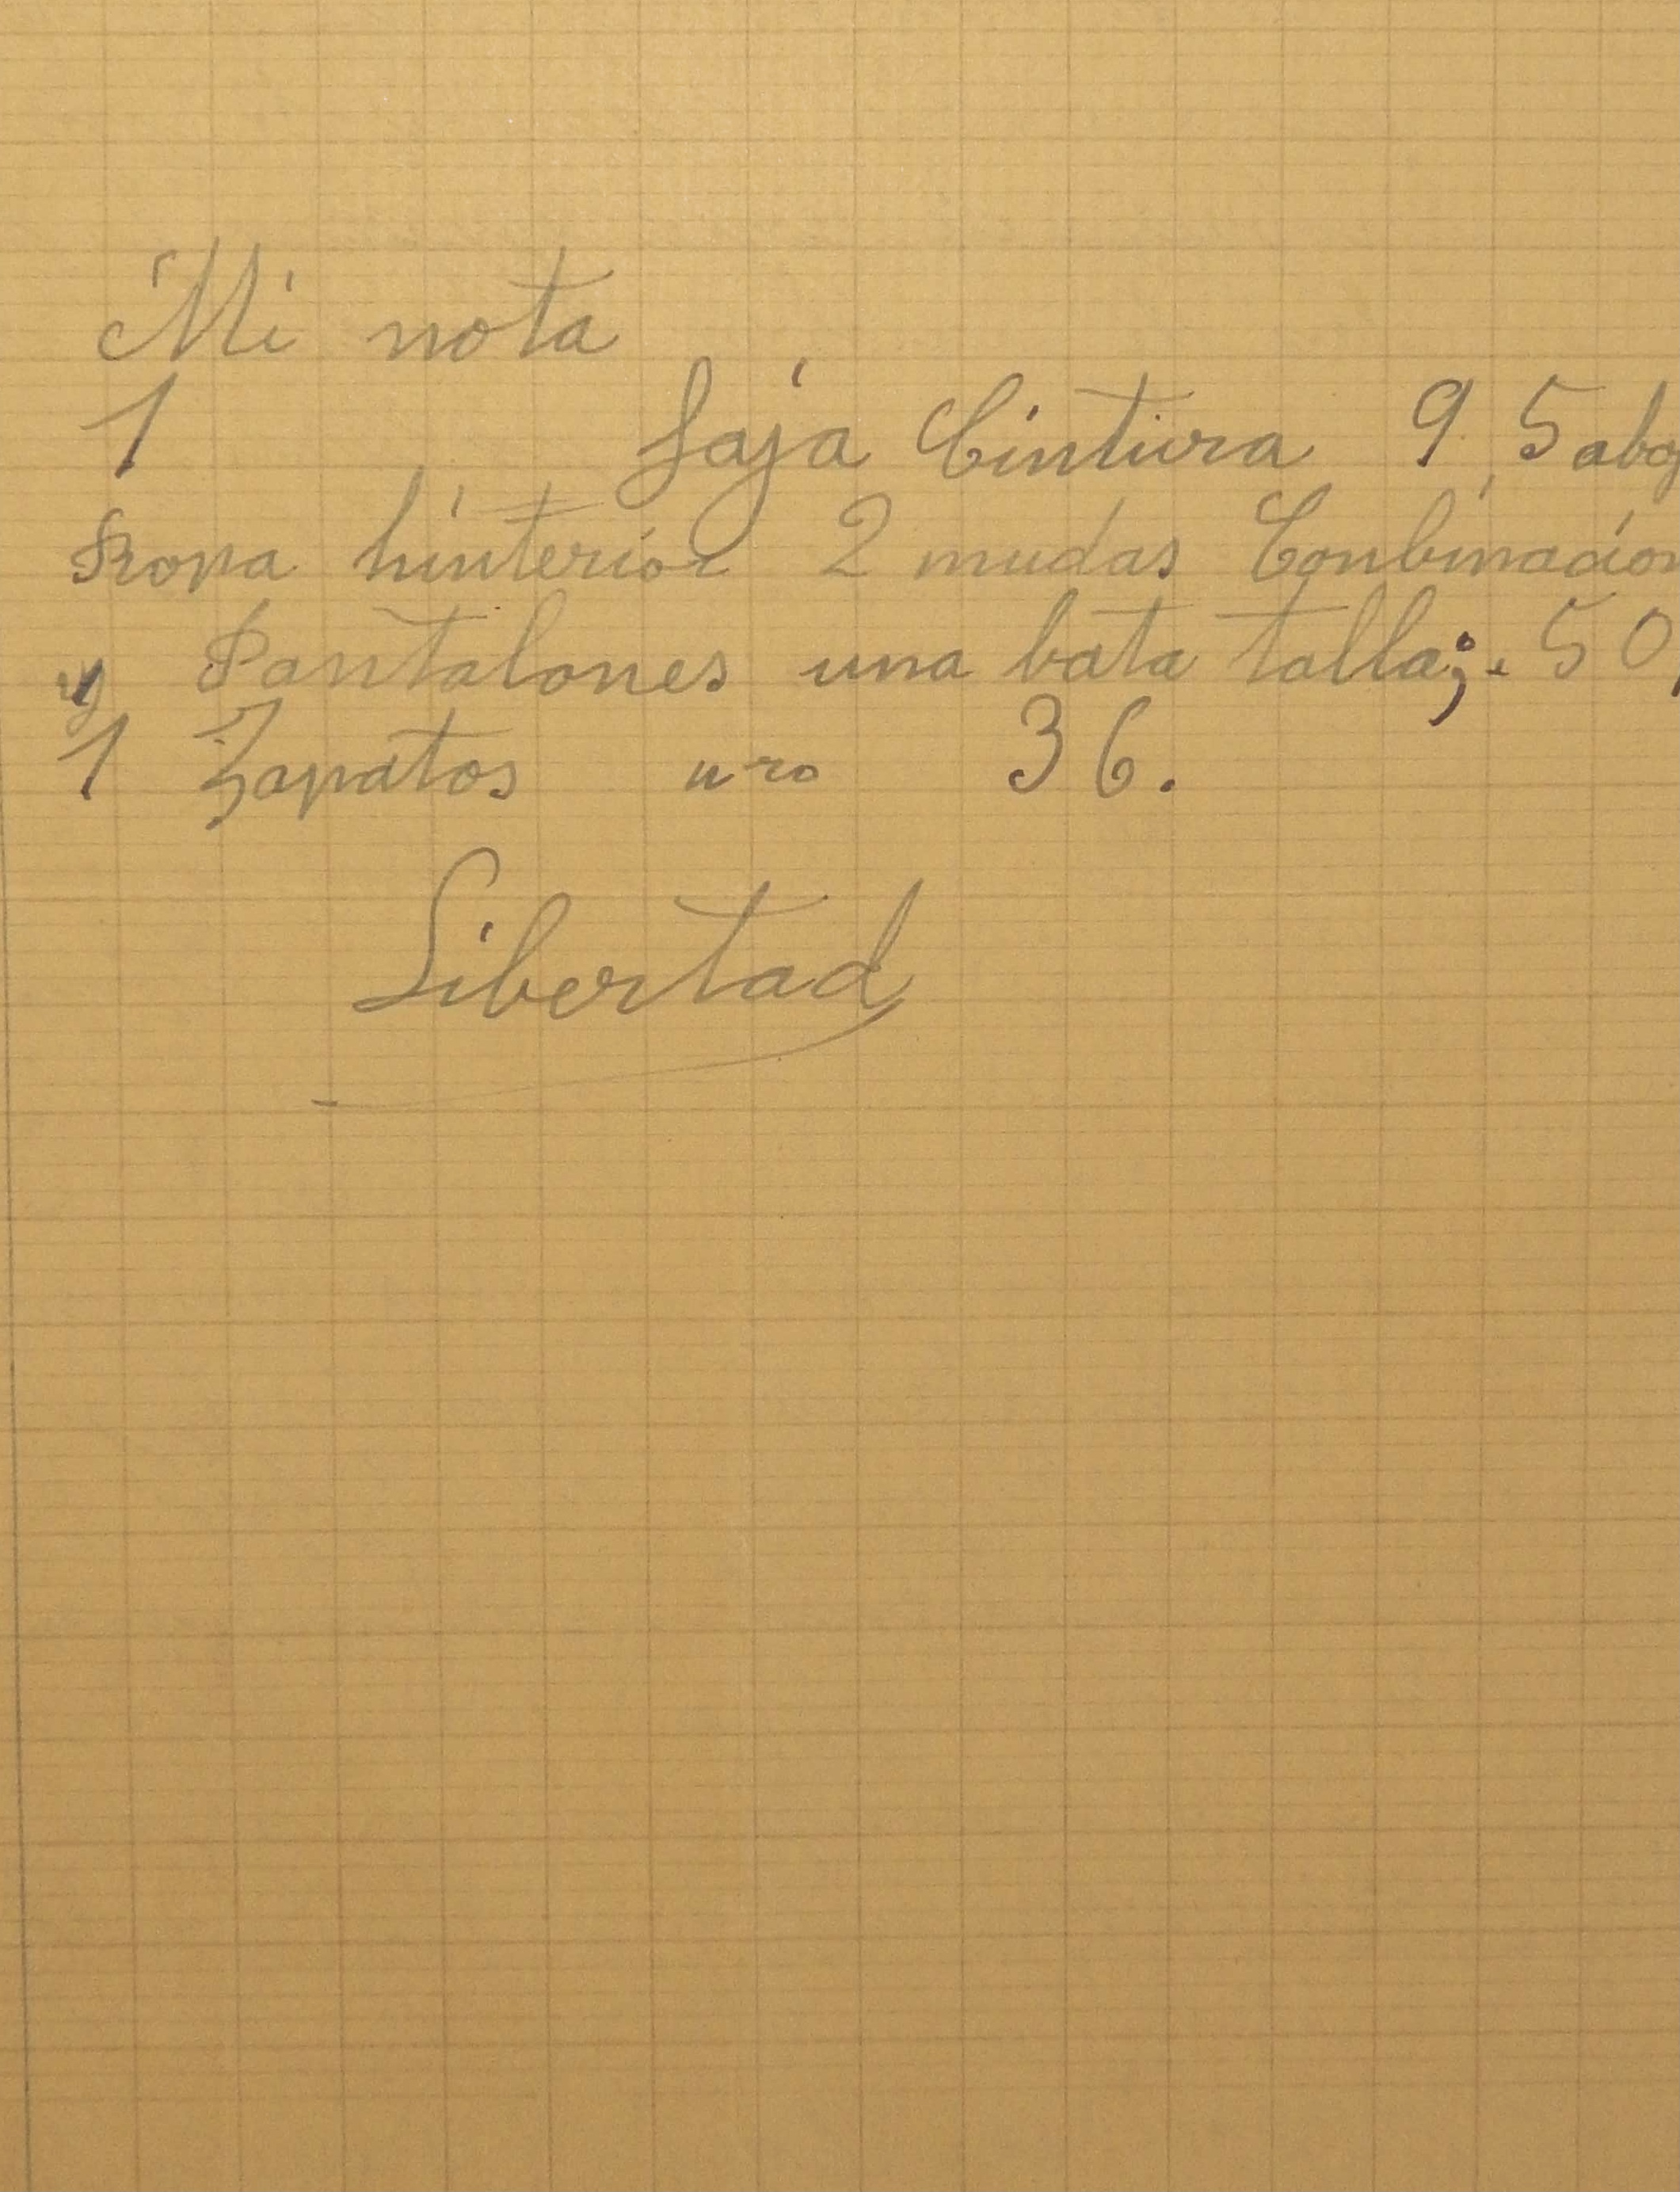 Mi nota
1 faja Cintura 95
Ropa hinterior 2 mudas Conbinacion
y Pantalones una bata talla;. 50,
1 Zapatos nro 36.
Libertad